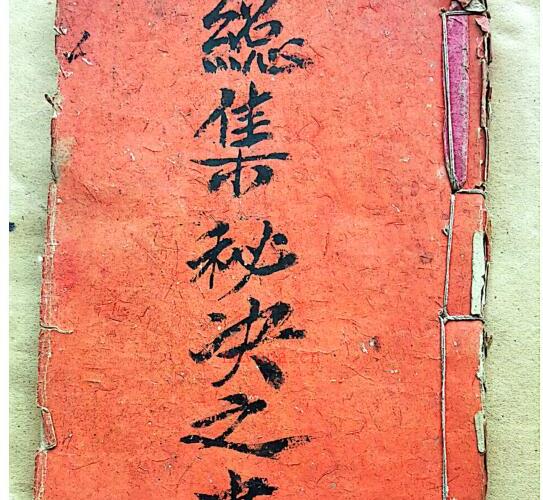 總集秘决之